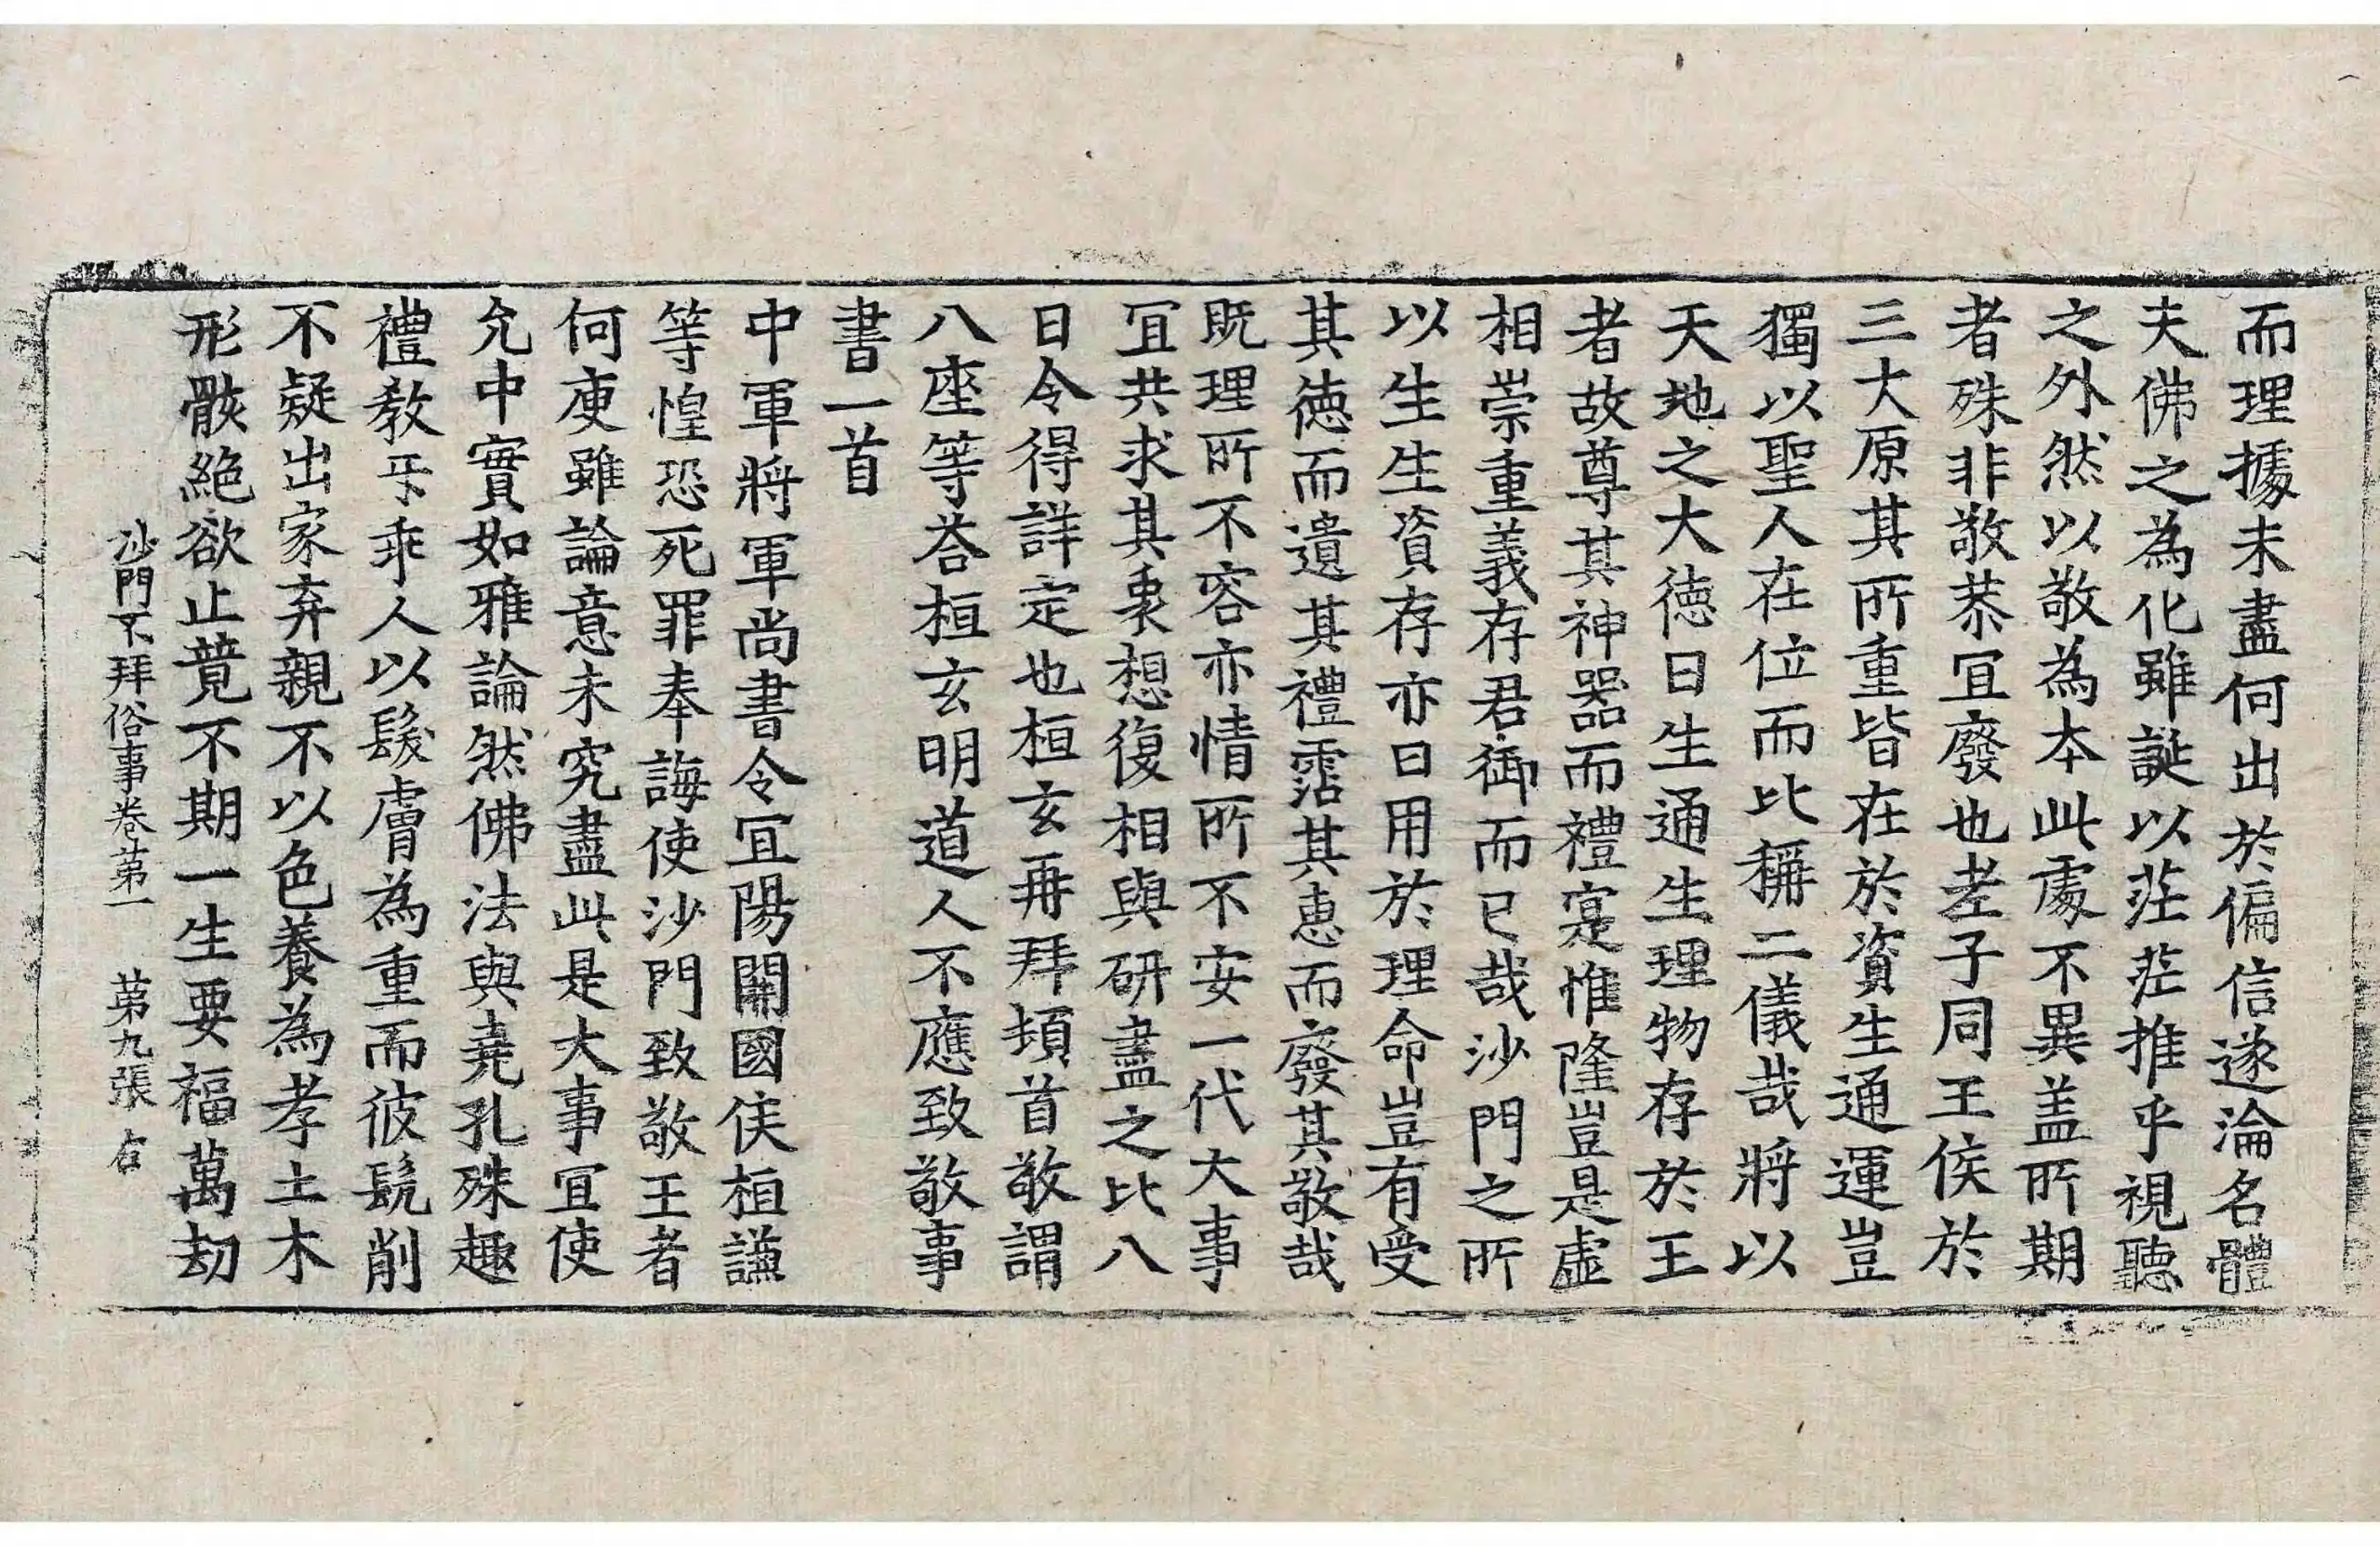 而理據未盡何出於偏信遂淪名體
夫佛之為化雖誕以茫茫推乎視聽
之外然以敬為本此處不異盖所期
者殊非敬恭冝廢也老子同王侯於
三大原其所重皆在於資生通運豈
獨以聖人在位而比稱二儀哉將以
天地之大徳曰生通生理物存於王
者故尊其神器而禮寔惟隆豈是虛
相崇重義存君御而已哉沙門之所
以生生資存亦日用於理命豈有受
其徳而遺其禮霑其惠而廢其敬哉
既理所不容亦情所不安一代大事
冝共求其衷想復相與研盡之比八
日令得詳定也桓玄再拜頓首敬謂
八座等荅桓玄明道人不應致敬事
書一首
中軍將軍尚書令冝陽開國侯桓謙
等惶恐死罪奉誨使沙門致敬王者
何庾雖論意未究盡此是大事冝使
允中實如雅論然佛法與堯孔殊趣
禮教㸦乖人以髮膚為重而彼髡削
不疑出家弃親不以色養為孝土木
形骸絕欲止競不期一生要福萬劫
沙門不拜俗事卷苐一 苐九張 右